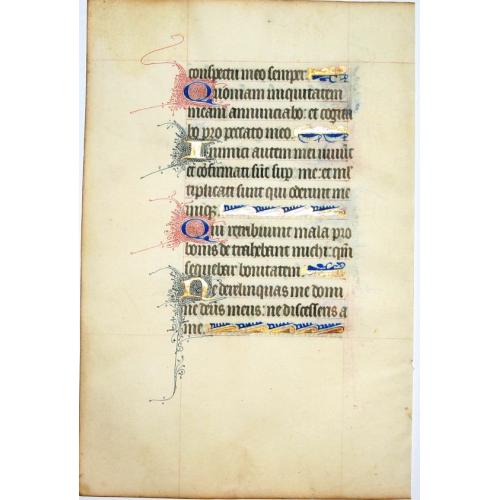 conspectu meo semper.
Quoniam iniquitatem
meam annunciabo: et cogita
bo pro peccato meo.
Inimici autem mei uiuūt
et confirmati sūt sup me: et ml
tiplicati sunt qui oderunt me
iniq̄.
Qui retribuunt mala pro
bonis detrahebant michi: qm̄
sequebar bonitatem.
Ne derelinquas me domi
ne deus meus: ne discesseris a
me.